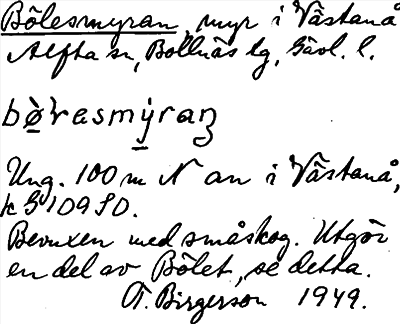 Bölesmyran, myr i Västanå
Alfta sn, Bollnäs tg, Gävl. l.
bø̀ɽasmýraɳ
Ung. 100 m N an i Västanå,
k S 109 SO.
Bevuxen med småskog. Utgör
en del av Bölet, se detta.
T. Birgerson 1949.